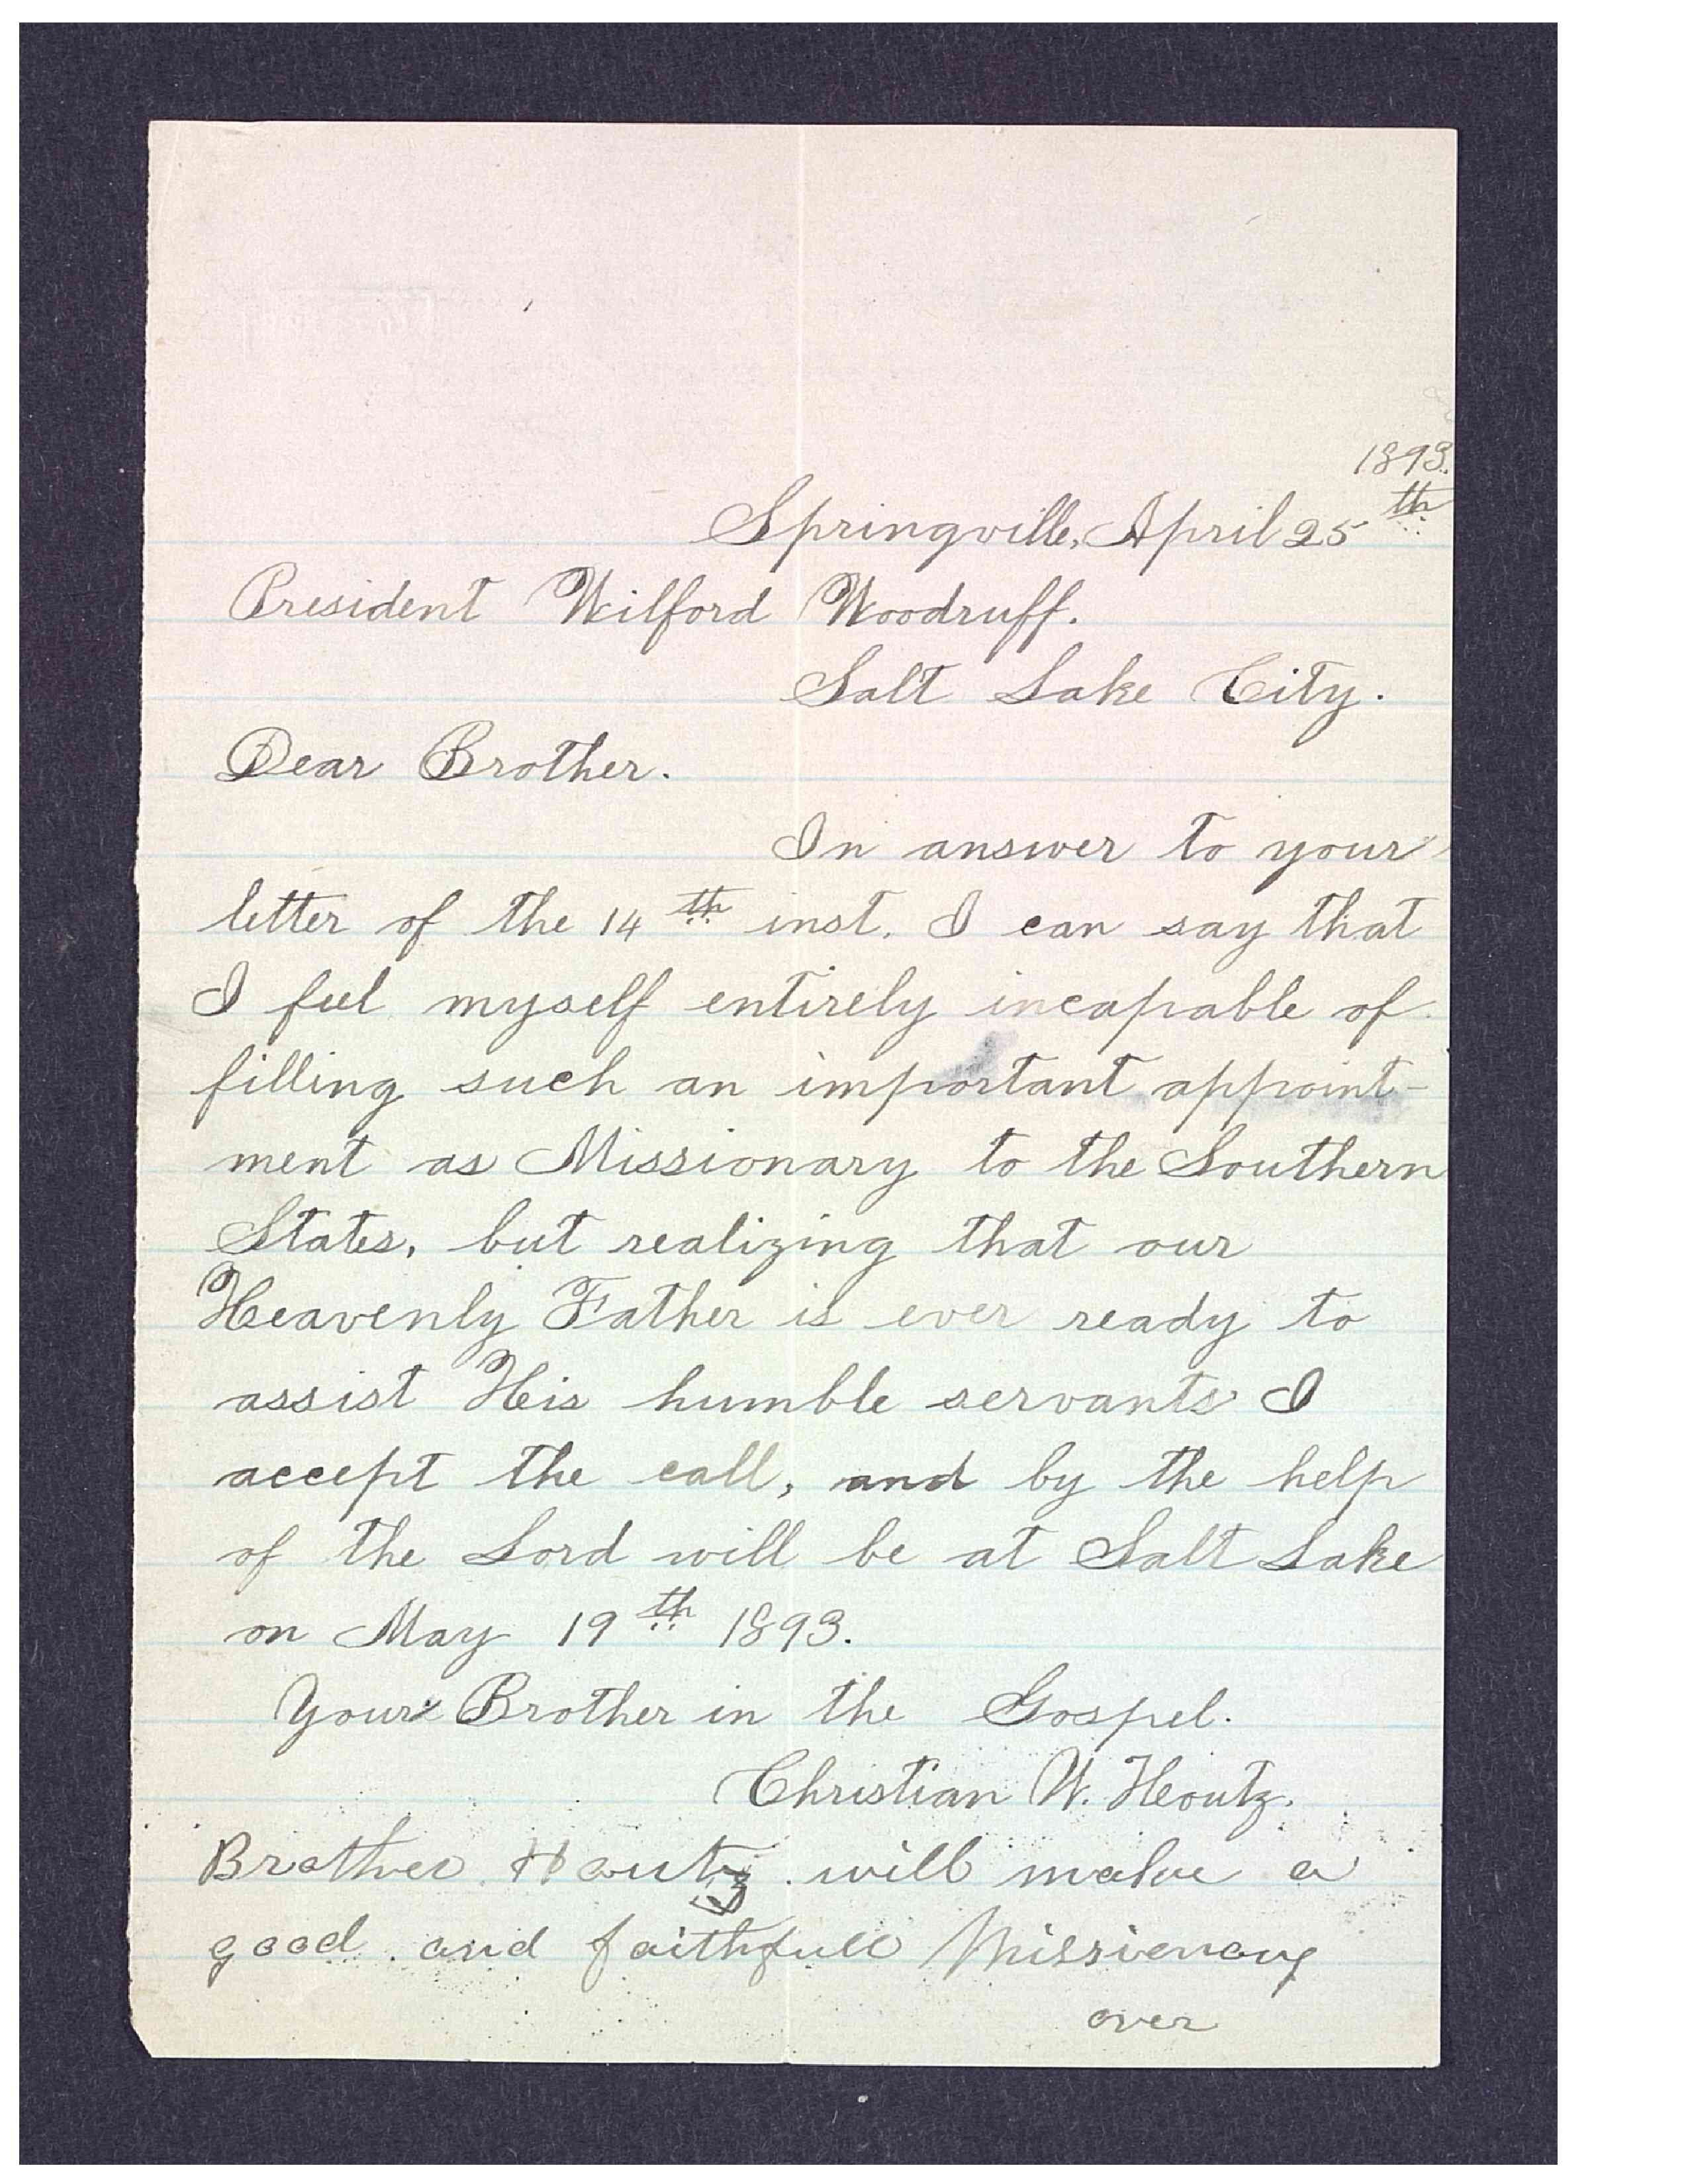 1893.
Springville, April 25th
President Wilford Woodruff.
Salt Lake City.
Dear Brother.
In answer to your
letter of the 14th inst. I can say that
I feel myself entirely incapable of
filling such an important appoint-
ment as Missionary to the Southern
States, but realizing that our
Heavenly Father is ever ready to
assist His humble servants I
accept the call, and by the help
of the Lord will be at Salt Lake
on May 19th 1893.
Your Brother in the Gospel.
Christian W. Houtz.
Brother Houtz will make a
good and faithfull Missionary
over